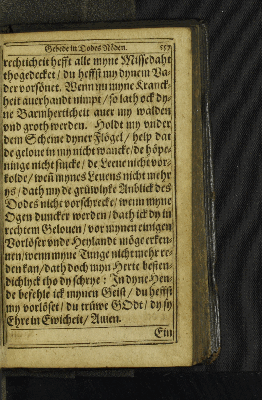 Gebede in Dodes Nöden. 557
rechticheit hefft alle myne Missedaht
thogedecket / du heffst my dynem Va-
der vorsönet. Wenn nu myne Kranck-
heit auerhandt nimpt / so lath ock dy-
ne Barmherticheit auer my walden
vnd groth werden. Holdt my vnder
dem Scheme dyner Flögel / help dat
de geloue in my nicht wancke / de höpe-
ninge nicht sincke / de Leeue nicht vor-
kolde / weñ mynes Leuens nicht mehr
ys / dath my de grüwlyke Anblick des
Dodes nicht vorschrecke / wenn myne
Ogen duncker werden / dath ick dy in
rechtem Gelouen / vor mynen einigen
Vorlöser vnde Heylandt möge erken-
nen / wenn myne Tunge nicht mehr re-
den kan / dath doch myn Herte besten-
dichlyck tho dy schrye : In dyne Hen-
de befehle ick mynen Geist / du heffst
my vorlöset / du trüwe GOdt / dy sy
Ehre in Ewicheit / Amen.
Ein